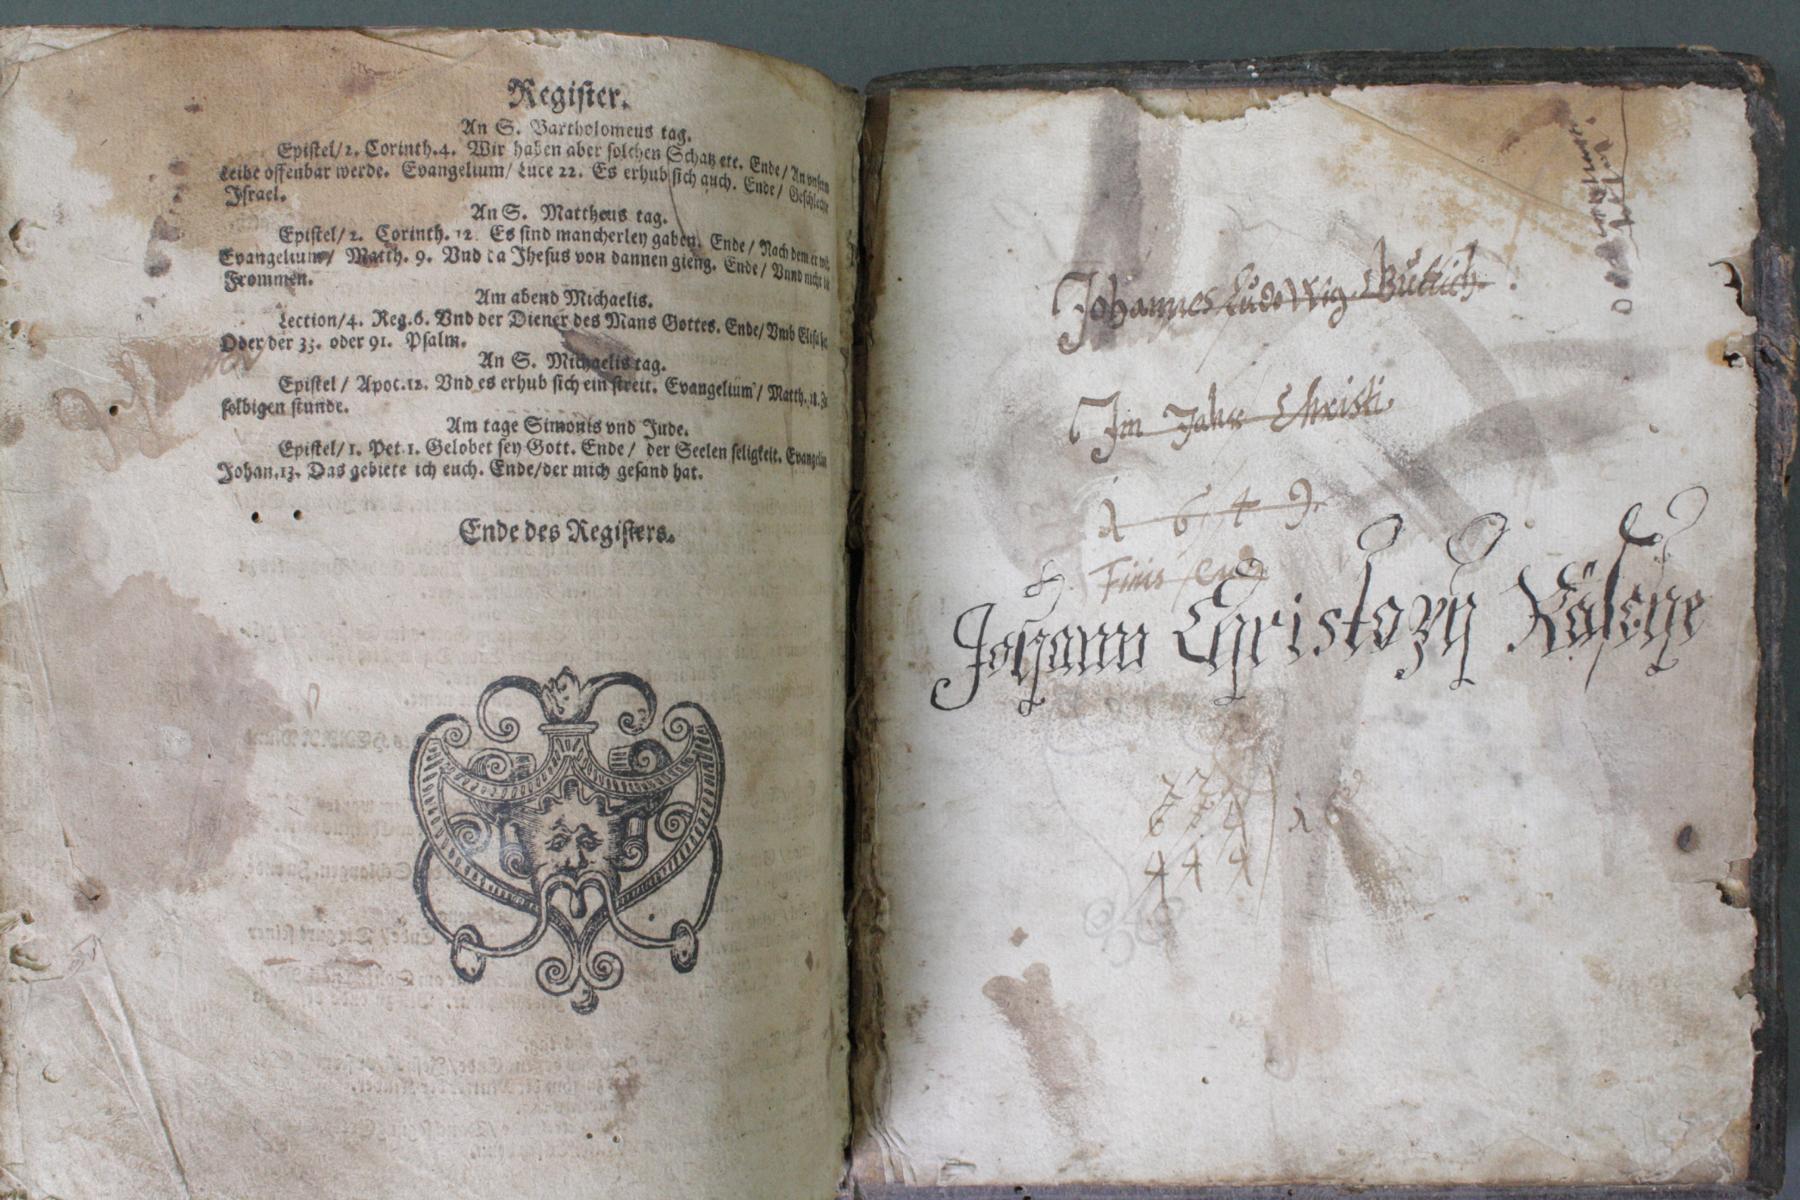 Register.
An S. Bartholomeus tag.
Epistel/2. Corinth.4. Wir haben aber solchen Schatz etc. Ende/ An vnserm
Leibe offenbar werde. Evangelium/ Luce 22. Es erhub sich auch. Ende/ Geschlechte
Israel.
An S. Mattheus tag.
Epistel/2. Corinth. 12. Es sind mancherley gaben. Ende/ Nach dem er wil.
Evangelium/ Matth. 9. Vnd da Jhesus von dannen gieng. Ende/ Vnnd nicht die
Frommen.
Am abend Michaelis.
Lection/4. Reg.6. Vnd der Diener des Mans Gottes. Ende/ Vmb Elisa her.
Oder der 33. oder 91. Psalm.
An S. Michaelis tag.
Epistel/ Apoc.12. Vnd es erhub sich ein streit. Evangelium/ Matth. 18. Zu
selbigen stunde.
Am tage Simonis vnd Jude.
Epistel/1. Pet.1. Gelobet sey Gott. Ende/ der Seelen seligkeit. Evangelium
Johan.13. Das gebiete ich euch. Ende/der mich gesand hat.
Ende des Registers.
Johannes Ludewig
Im Jahr Christi
1649.
Finis
Johann Christoph
444